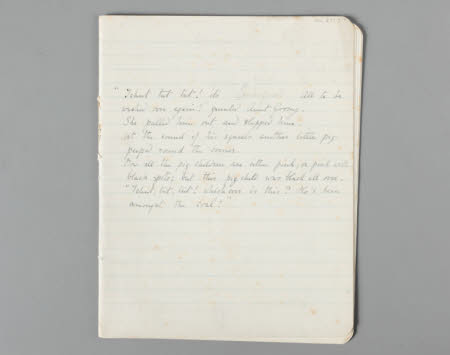 "Tchut tut tut! do all to be
washed over again! grunted Aunt
She pulled him out and slapped him.
At the sound of his squeals another little pig
peeped round the corner.
Now all the pig children are either pink, or pink with
black spots; but this pig child was black all over.
"Tchut, tut, tut! which one is this? He's been
amongst the coal!"